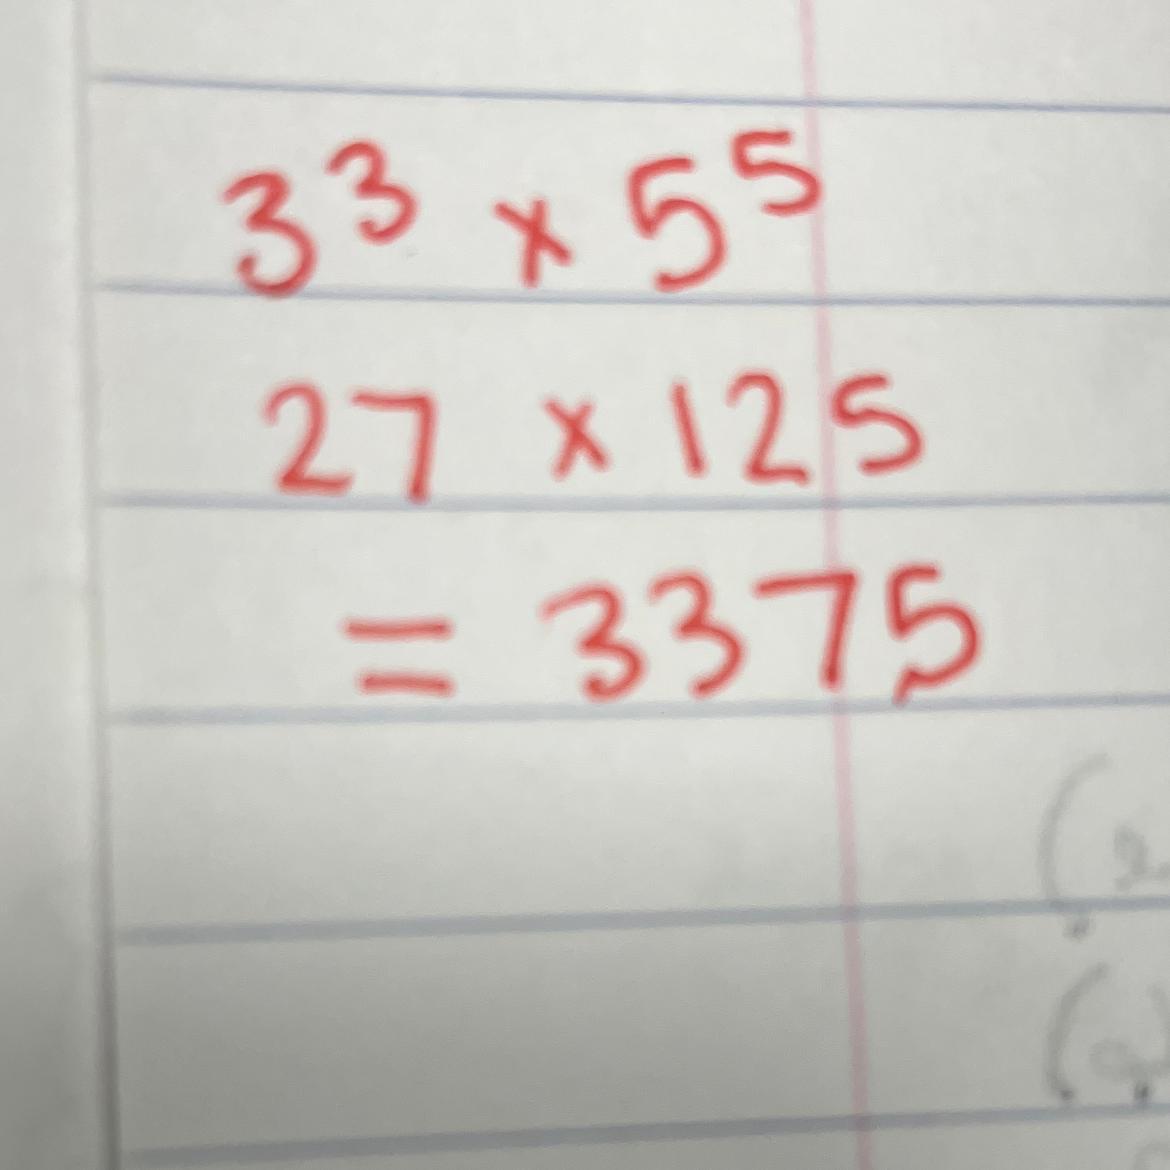 3³ × 5⁵
27 × 125
= 3375